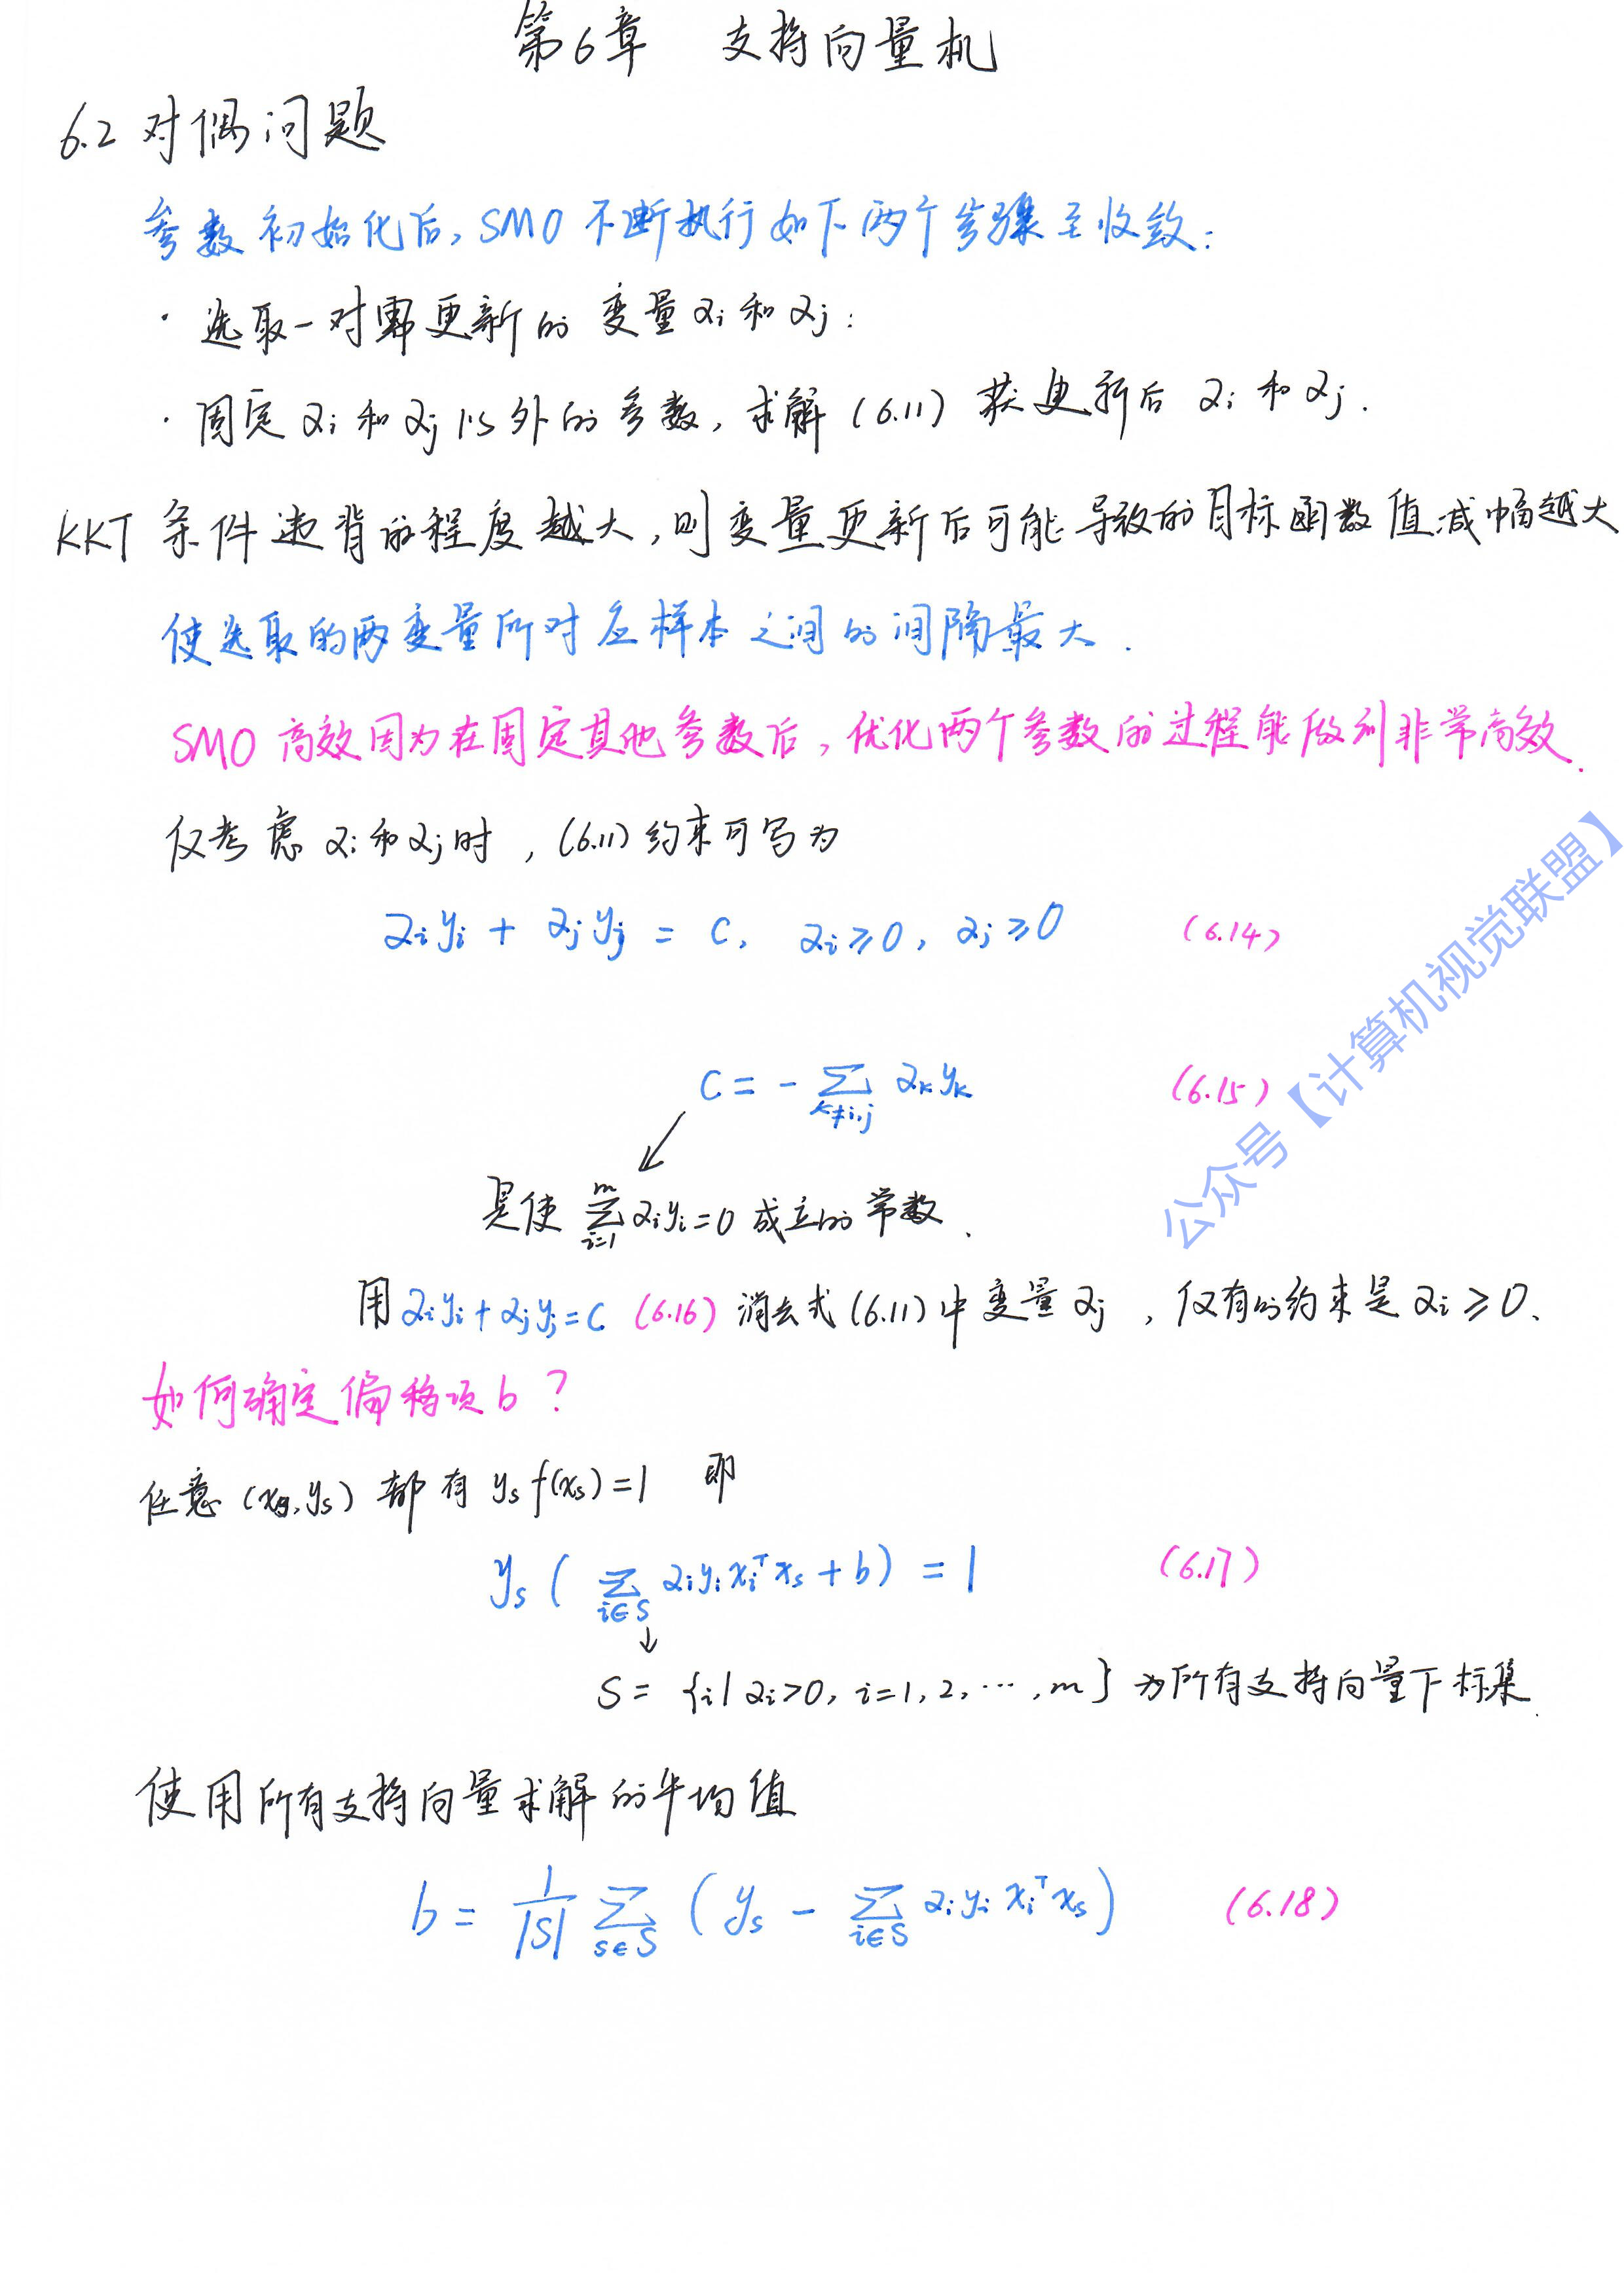 第6章 支持向量机
6.2 对偶问题
参数初始化后, SMO 不断执行如下两个步骤至收敛:
· 选取一对需更新的变量 αi 和 αj:
· 固定 αi 和 αj 以外的参数, 求解 (6.11) 获更新后 αi 和 αj.
KKT 条件违背的程度越大, 则变量更新后可能导致的目标函数值减幅越大
使选取的两变量所对应样本之间的间隔最大.
SMO 高效因为在固定其他参数后, 优化两个参数的过程能做到非常高效.
仅考虑 αi 和 αj 时, (6.11) 约束可写为
αi yi + αj yj = c, αi ≥ 0, αj ≥ 0 (6.14)
c = - ∑_{k≠i,j} αk yk (6.15)
是使 ∑_{i=1}^{m} αi yi = 0 成立的常数.
用 αi yi + αj yj = c (6.16) 消去式 (6.11) 中变量 αj , 仅有的约束是 αi ≥ 0.
如何确定偏移项 b ?
任意 (xs, ys) 都有 ys f(xs) = 1 即
ys ( ∑_{i∈S} αi yi xi^T xs + b ) = 1 (6.17)
S = {i | αi > 0, i = 1, 2, ⋯, m} 为所有支持向量下标集.
使用所有支持向量求解的平均值
b = 1/|S| ∑_{s∈S} ( ys - ∑_{i∈S} αi yi xi^T xs ) (6.18)
公众号【计算机视觉联盟】